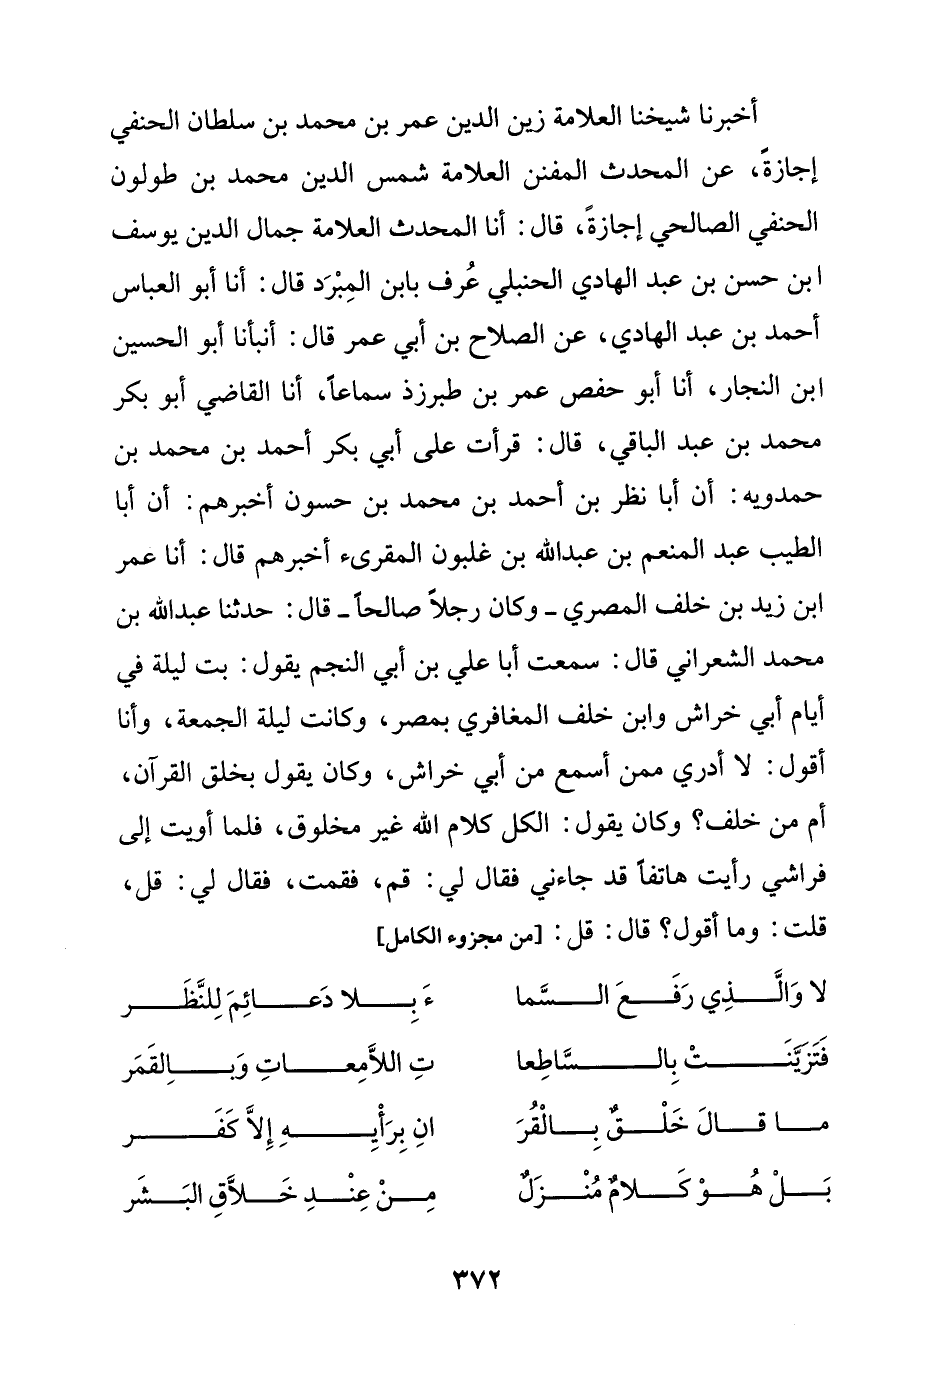 أخبرنا شيخنا العلامة زين الدين عمر بن محمد بن سلطان الحنفي
إجازةً، عن المحدث المفنن العلامة شمس الدين محمد بن طولون
الحنفي الصالحي إجازةً، قال: أنا المحدث العلامة جمال الدين يوسف
ابن حسن بن عبد الهادي الحنبلي عُرف بابن المِبْرَد قال: أنا أبو العباس
أحمد بن عبد الهادي، عن الصلاح بن أبي عمر قال: أنبأنا أبو الحسين
ابن النجار، أنا أبو حفص عمر بن طبرزذ سماعاً، أنا القاضي أبو بكر
محمد بن عبد الباقي، قال: قرأت على أبي بكر أحمد بن محمد بن
حمدويه: أن أبا نظر بن أحمد بن محمد بن حسون أخبرهم: أن أبا
الطيب عبد المنعم بن عبدالله بن غلبون المقرىء أخبرهم قال: أنا عمر
ابن زيد بن خلف المصري ـ وكان رجلاً صالحاً ـ قال: حدثنا عبدالله بن
محمد الشعراني قال: سمعت أبا علي بن أبي النجم يقول: بت ليلة في
أيام أبي خراش وابن خلف المغافري بمصر، وكانت ليلة الجمعة، وأنا
أقول: لا أدري ممن أسمع من أبي خراش، وكان يقول بخلق القرآن،
أم من خلف؟ وكان يقول: الكل كلام الله غير مخلوق، فلما أويت إلى
فراشي رأيت هاتفاً قد جاءني فقال لي: قم، فقمت، فقال لي: قل،
قلت: وما أقول؟ قال: قل: [من مجزوء الكامل]
لا وَالَّـذِي رَفَـعَ الـسَّما ءَ بِـلا دَعـائِمَ لِلنَّظَـر
فَتَزَيَّنَـتْ بِالـسَّاطِعا تِ اللاَّمِعـاتِ وَبـالِقَمَر
مـا قـالَ خَلْـقٌ بِـالْقُرَ انِ بِرَأْيِـهِ إِلاَّ كَفَـر
بَـلْ هُـوْ كَـلامٌ مُنْـزَلٌ مِـنْ عِنْـدِ خَـلاَّقِ البَـشَر
٣٧٢